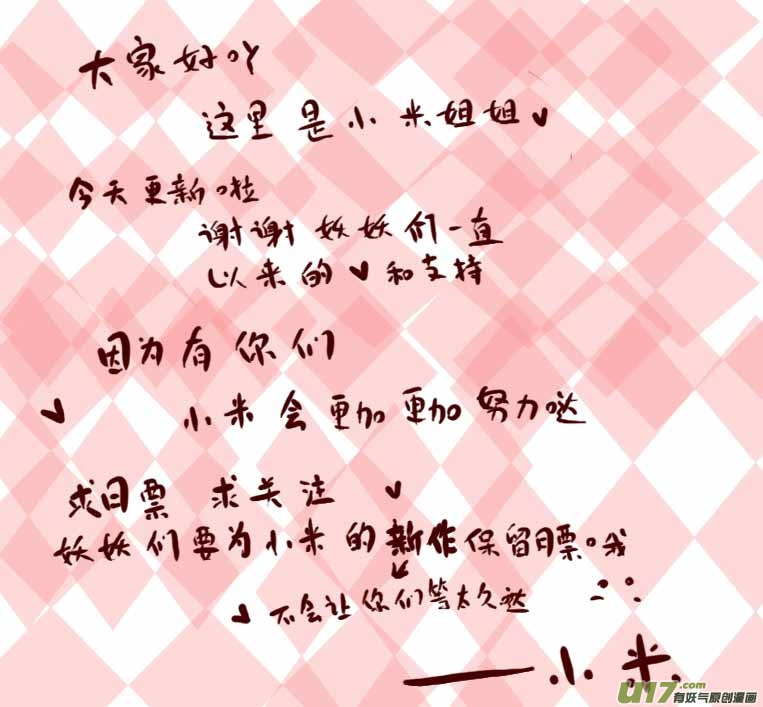 大家好吖
这里是小米姐姐
今天更新啦
谢谢妖妖们一直
以来的♥和支持
因为有你们
小米会更加更加努力哒
求月票 求关注
妖妖们要为小米的新作保留月票哦
不会让你们等太久哒
——小米
U17.com
有妖气原创漫画